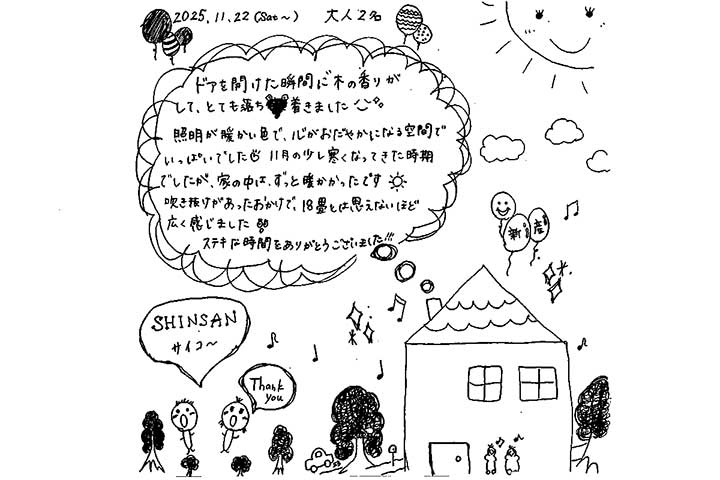 2025.11.22 (Sat~) 大人2名
ドアを開けた瞬間に木の香りが
して、とても落ち着きました
照明が暖かい色で、心がおだやかになる空間で
いっぱいでした 11月の少し寒くなってきた時期
でしたが、家の中は、ずっと暖かかったです
吹き抜けがあったおかげで、18畳とは思えないほど
広く感じました
ステキな時間をありがとうございました!!!
新産
SHINSAN
サイコ～
Thank
you